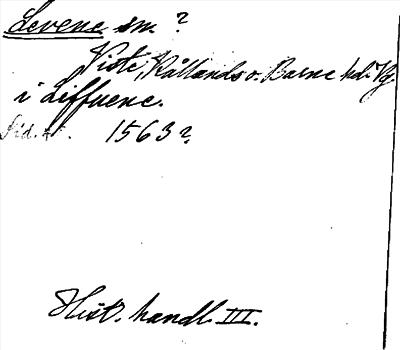 Levene sn. ?
Viste, Kållands o. Barne hd. Vg.
i Liffuene.
Sid. 45. 1563 ?
Hist. handl. III.